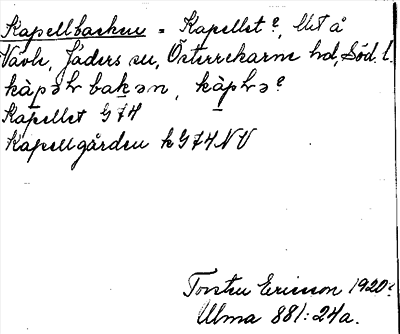 Kapellbacken = Kapellet?, Utst å
Vävle, Jäders sn, Österrekarne hd, Söd. l.
kàpəɫ bakən, kàpɫə?
Kapellet G 74
Kapellgården k G 74 NV
Torsten Ericsson 1920.
Ulma 881:24a.